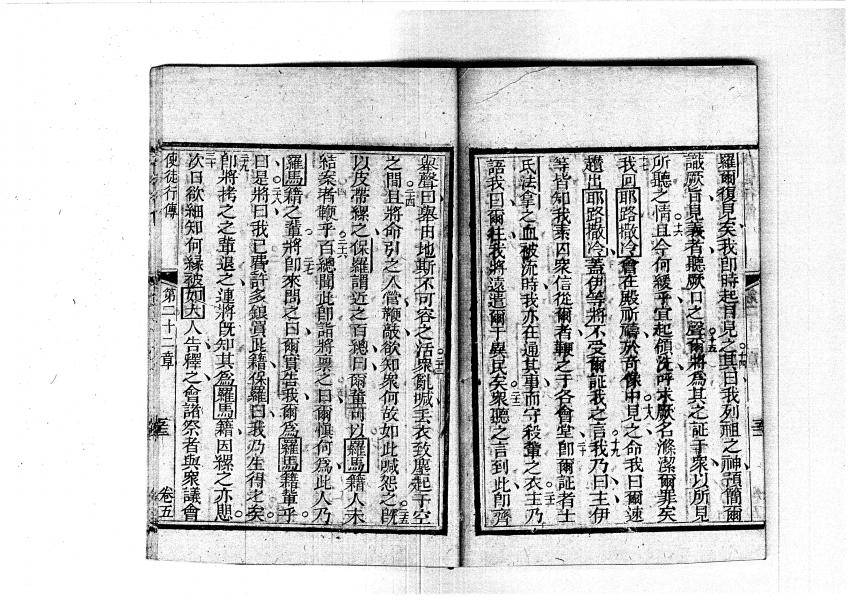 羅爾復見矣我卽時起目見之其曰我列祖之神預簡爾
識厥旨見義者聽厥口之聲爾將爲其之証于衆以所見
所聽之情且今何緩乎宜起領洗呼求厥名滌潔爾罪矣
我回耶路撒冷會在殿祈禱於奇像中見之命我曰爾速
趲出耶路撒冷蓋伊等將不受爾証我之言我乃曰主伊
等皆知我素囚衆信從爾者鞭之于各會堂卽爾証者士
氐法拿之血被流時我亦在通其事而守殺輩之衣主乃
語我曰爾往我將遠遣爾于異民矣衆聽之言到此卽齊
舉聲曰舉由地斯不可容之活衆亂喊丢衣致塵起于空
之間且將命引之入營鞭敲欲知衆何故如此喊怨之旣
以皮帶縲之保羅謂近之百總曰爾輩可以羅馬籍人未
結案者鞭乎百總聞此卽詣將禀之曰爾愼何爲此人乃
羅馬籍之輩將卽來問之曰爾實告我爾爲羅馬籍輩乎
曰是將曰我已費許多鎮買此籍保羅曰我乃生得之矣
卽將拷之之輩退之連將旣知其爲羅馬籍因縲之亦思
次日欲細知何緣被如大人告釋之會諸祭者與衆議會
使徒行傳 第二十二章 卷五